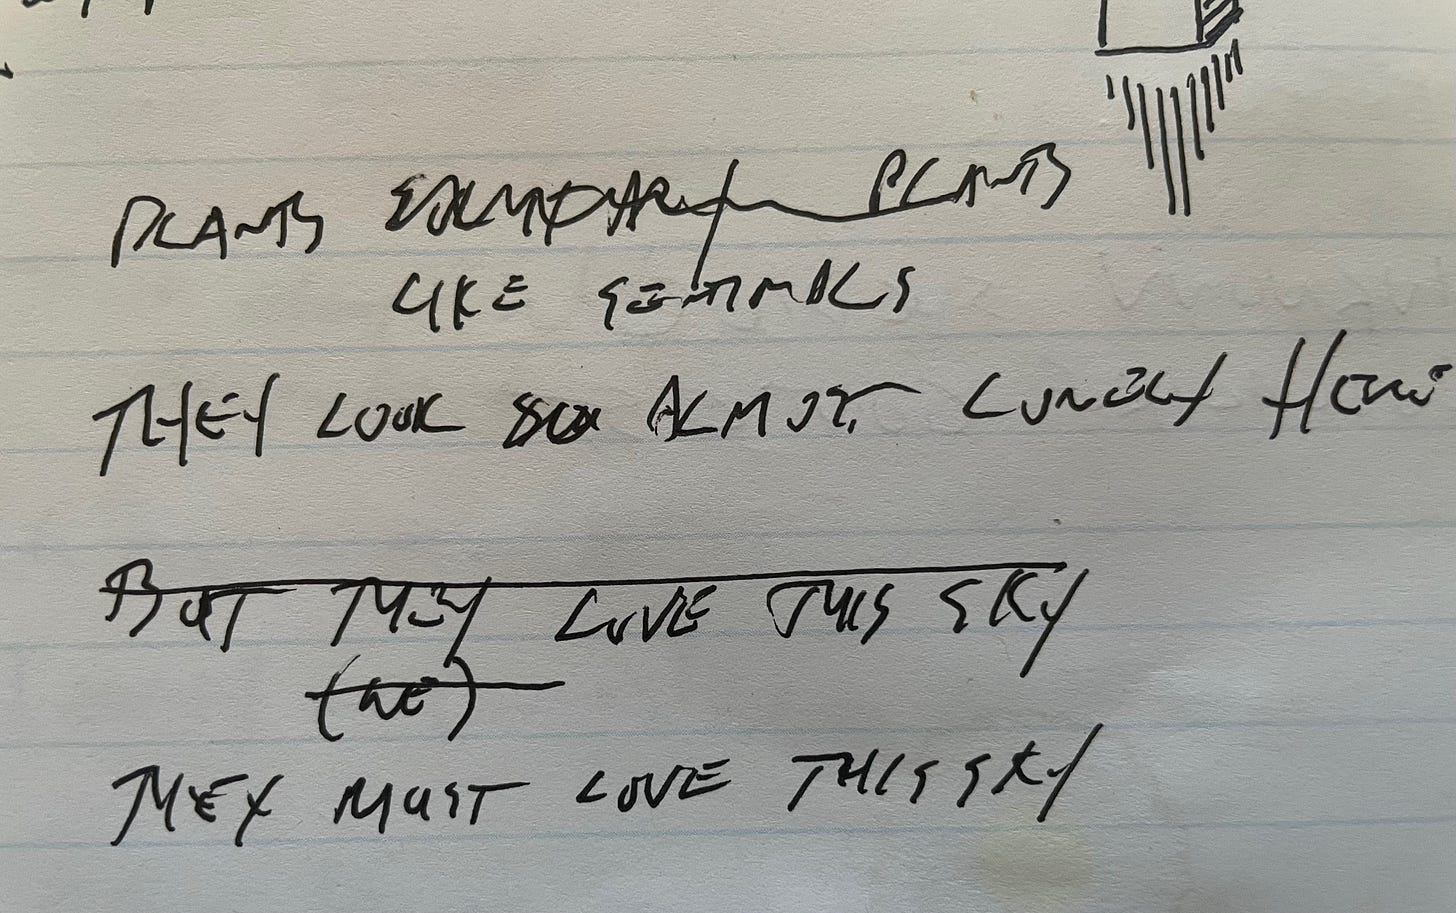 PLANTS PLANTS
LIKE SENTINALS
THEY LOOK ALMOST LONELY HERE
BUT THEY LOVE THIS SKY
(WE)
THEY MUST LOVE THIS SKY